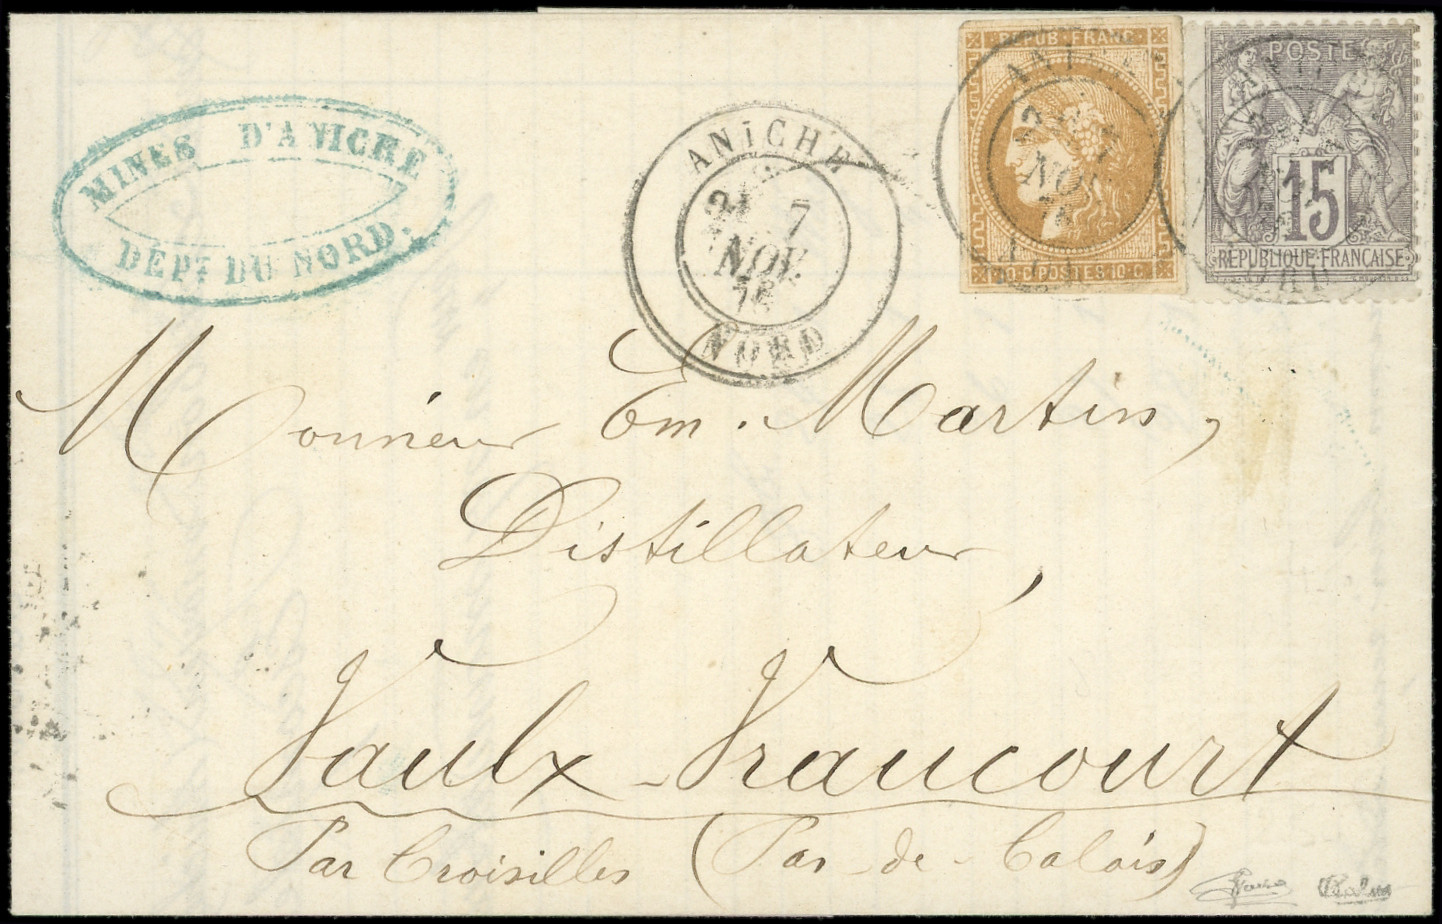 MINES D'ANICHE
DÉPT. DU NORD.
ANICHE
7
NOV.
76
NORD
REPUB. FRANC.
ANICHE
NOV
76
10.C. POSTES 10.C
POSTE
15
REPUBLIQUE FRANÇAISE
Monsieur Em. Martin,
Distillateur,
Vaulx-Vraucourt
Par Croisilles (Pas-de-Calais)